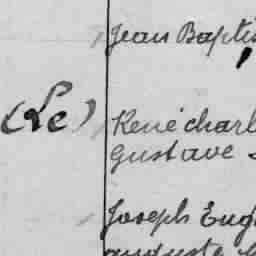 Jean Baptis
(Le) René charl
Gustave
Joseph Eug
auguste